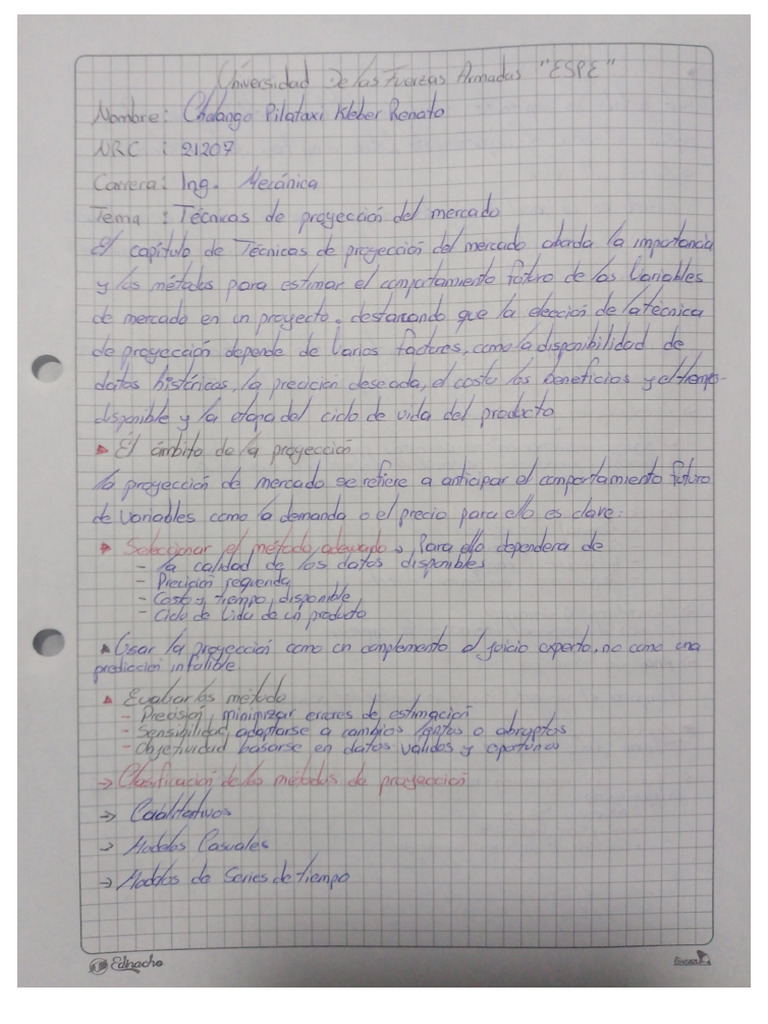 Universidad De las Fuerzas Armadas "ESPE"
Nombre: Chalango Pilataxi Kleber Renato
NRC : 21207
Carrera: Ing. Mecánica
Tema : Técnicas de proyección del mercado
El capítulo de Técnicas de proyección del mercado aborda la importancia
y los métodos para estimar el comportamiento futuro de las Variables
de mercado en un proyecto, destacando que la elección de la técnica
de proyección depende de varios factores, como la disponibilidad de
datos históricos, la precicion deseada, el costo los beneficios y el tiempo
disponible y la etapa del ciclo de vida del producto
El ámbito de la proyección
la proyección de mercado se refiere a anticipar el comportamiento futuro
de variables como la demanda o el precio para ello es clave:
Seleccionar el método adecuado, Para ello dependera de
- la calidad de los datos disponibles
- Precición requerida
- Costo y tiempo disponible
- Ciclo de Vida de un producto
Usar la proyección como un complemento al juicio experto, no como una
prediccion infalible.
Evaluar los metodo
- Precisión, minimizar errores de estimación
- Sensibilidad, adaptarse a cambios lentos o abruptos
- Objetividad basarse en datos validos y oportunos
→ Clasificación de los métodos de proyección
→ Cualitativos
→ Modelos Casuales
→ Modelos de Series de tiempo
Edinacho